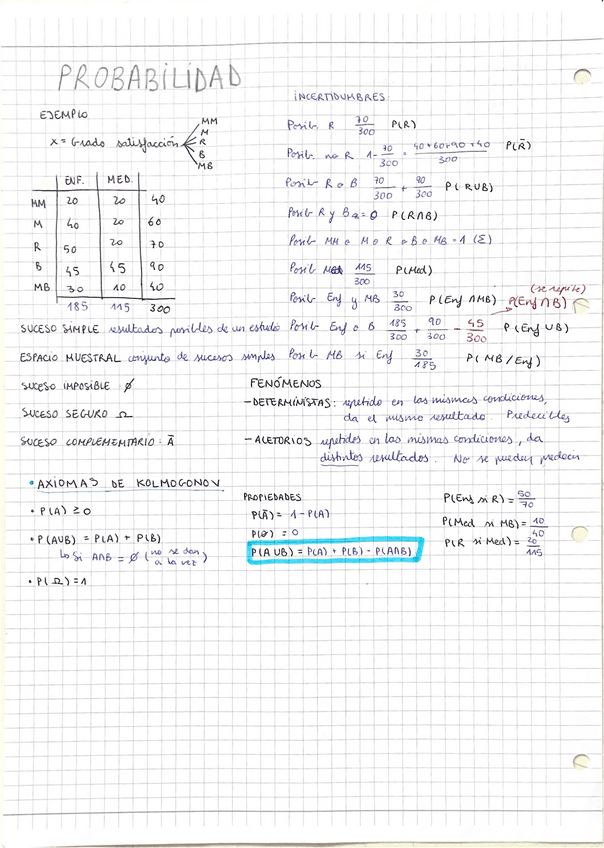 PROBABILIDAD
EJEMPLO
X = Grado satisfacción
MM
M
R
B
MB
ENF. MED.
MM 20 20 40
M 40 20 60
R 50 20 70
B 45 45 90
MB 30 10 40
185 115 300
SUCESO SIMPLE resultados posibles de un estudio
ESPACIO MUESTRAL conjunto de sucesos simples
SUCESO IMPOSIBLE: ∅
SUCESO SEGURO Ω
SUCESO COMPLEMENTARIO: Ā
INCERTIDUMBRES
Posib. R 70/300 P(R)
Posib no R 1 - 70/300 = 40+60+90+40/300 P(R̄)
Posib R o B 70/300 + 90/300 P(RUB)
Posib R y B = 0 P(R∩B)
Posib MM o M o R o B o MB = 1 (Σ)
Posib Med 115/300 P(Med)
Posib Enf y MB 30/300 P(Enf ∩MB) P(Enf ∩ B)
(se repite)
Posib Enf o B 185/300 + 90/300 - 45/300 P(Enf ∪B)
Posib MB si Enf 30/185 P(MB/Enf)
FENÓMENOS
- DETERMINISTAS: repetido en las mismas condiciones,
da el mismo resultado. Predecibles
- ALETORIOS repetidos en las mismas condiciones, da
distintos resultados. No se pueden predecir
• AXIOMAS DE KOLMOGONOV
• P(A) ≥ 0
• P(AUB) = P(A) + P(B)
Lo Si A∩B = ∅ (no se dan
a la vez)
• P(Ω) = 1
PROPIEDADES
P(Ā) = 1 - P(A)
P(∅) = 0
P(AUB) = P(A) + P(B) - P(A∩B)
P(Enf si R) = 50/70
P(Med si MB) = 10/40
P(R si Med) = 20/115